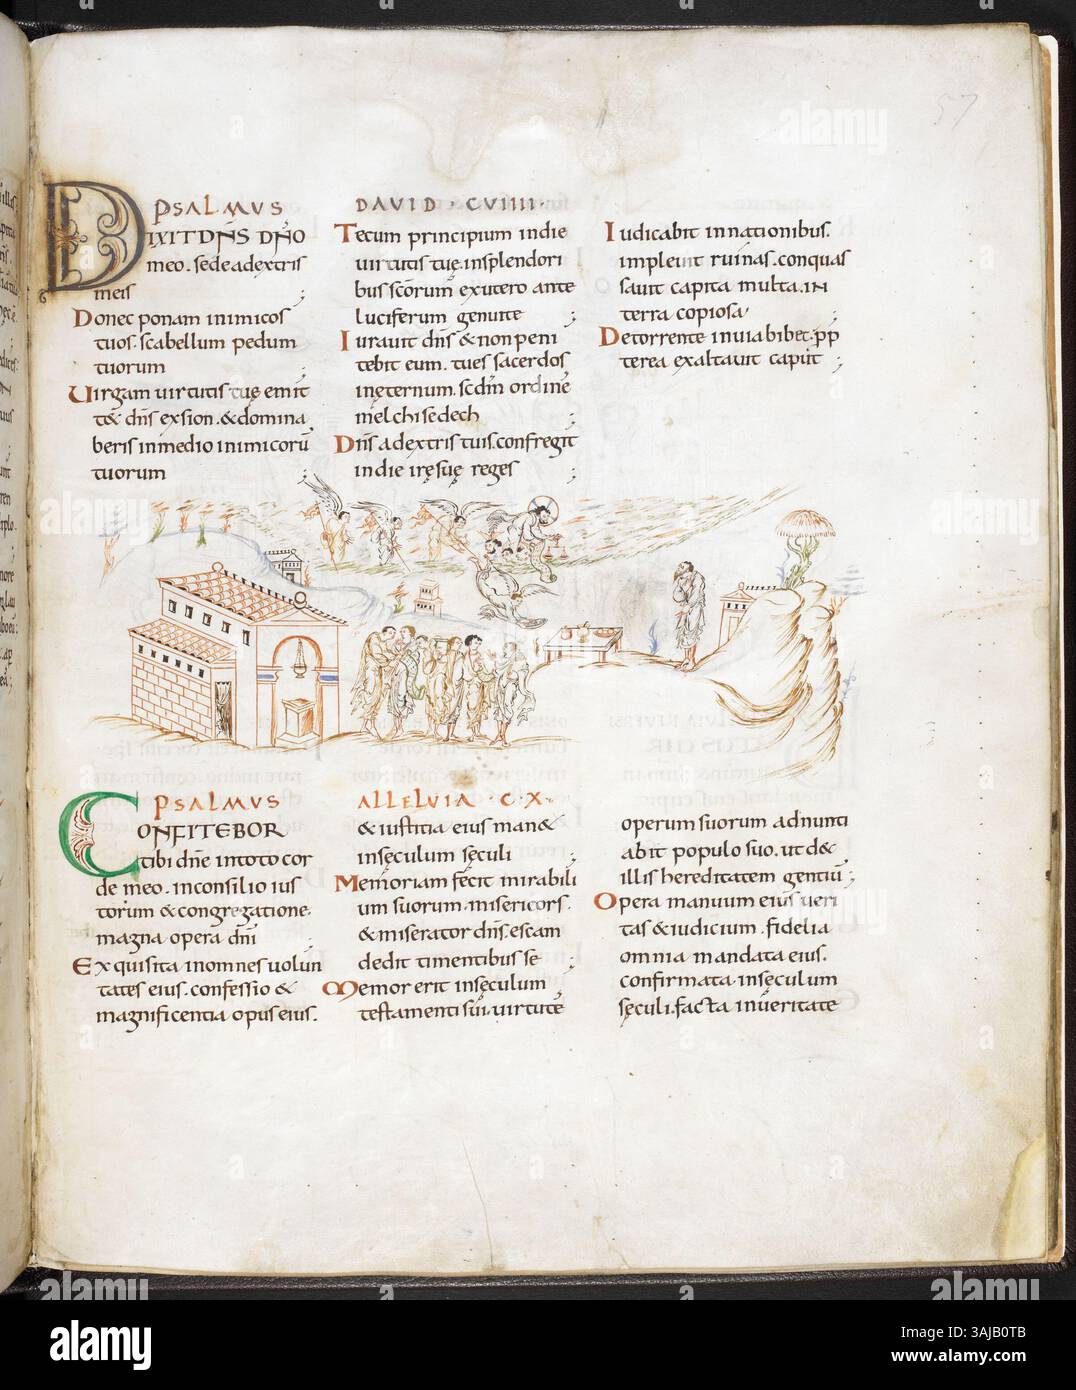 57
PSALMVS DAVID · CVIIII ·
DIXIT DN̄S DN̄O
meo . sede adextris
meis ;
Donec ponam inimicos
tuos . scabellum pedum
tuorum ;
Virgam uirtutis tuę emit
t& dn̄s exsion . & domina
beris inmedio inimicorū
tuorum ;
Tecum principium indie
uirtutis tuę . insplendori
bus scōrum exutero ante
luciferum genuite ;
Iurauit dn̄s & nonpeni
tebit eum . tu es sacerdos
inęternum . scdm̄ ordinē
melchisedech ;
Dn̄s adextris tuis . confregit
indie irę suę reges ;
Iudicabit innationibus .
impleuit ruinas . conquas
sauit capita multa . IN
terra copiosa ;
Detorrente inuia bibet . pp
terea exaltauit caput ;
PSALMVS ALLELVIA · C · X ·
CONFITEBOR
tibi dn̄e intoto cor
de meo . inconsilio ius
torum & congregatione .
magna opera dn̄i ;
Exquisita inomnes uolun
tates eius . confessio &
magnificentia opus eius .
& iustitia eius man&
insęculum sęculi ;
Memoriam fecit mirabili
um suorum . misericors .
& miserator dn̄s . escam
dedit timentibus se ;
Memor erit insęculum
testamenti sui . uirtutē
operum suorum adnunti
abit populo suo . ut d&
illis hereditatem gentiū ;
Opera manuum eius ueri
tas & iudicium . fidelia
omnia mandata eius .
confirmata insęculum
sęculi . facta inueritate
alamy
Image ID: 3AJB0TB
www.alamy.com